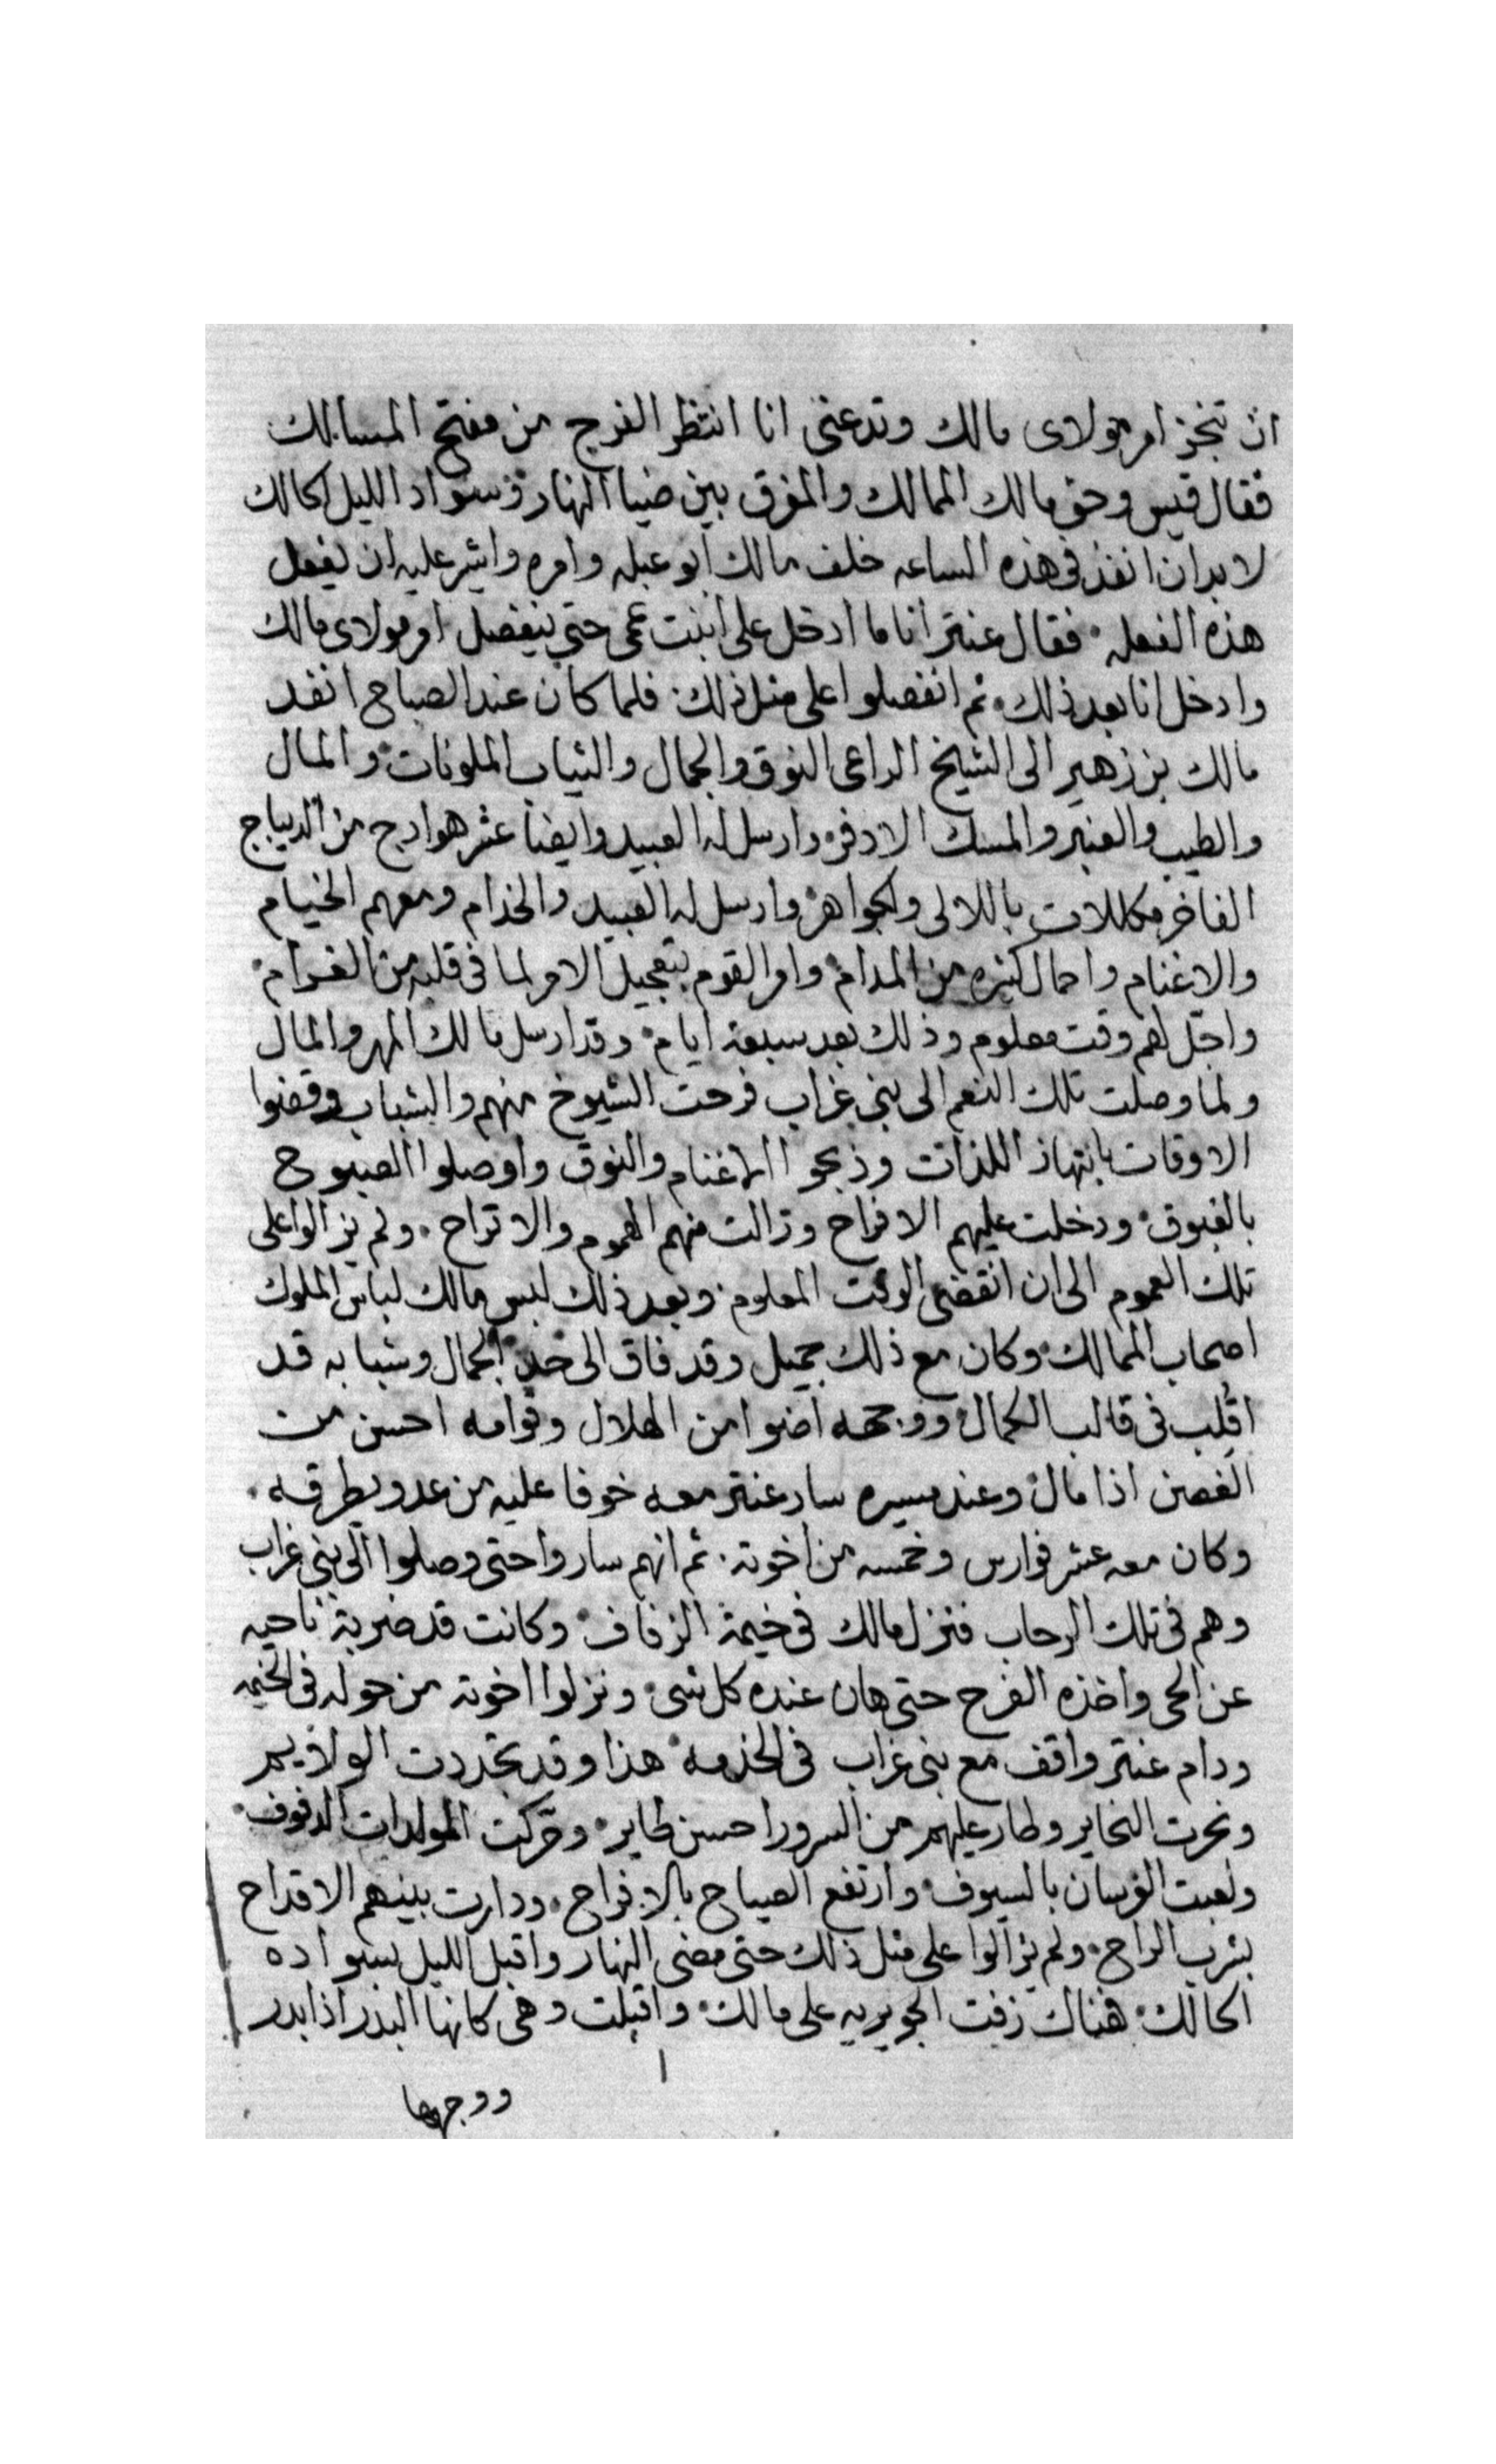 ان تنجز امر مولاى مالك وتدعنى انا انتظر الفرج من مفتح المسالك
فقال قيس وحق مالك الممالك والمفرق بين ضيا النهار وسواد الليل الحالك
لا بد ان انفذ فى هذه الساعه خلف مالك ابو عبله وامره واشير عليه ان يفعل
هذه الفعله فقال عنتر انا ما ادخل على ابنت عمى حتى ينفصل امر مولاى مالك
وادخل انا بعد ذلك ثم انفصلوا على مثل ذلك فلما كان عند الصباح انفد
مالك بن زهير الى الشيخ الراعى النوق والجمال والثياب الملونات والمال
والطيب والعنبر والمسك الادفر وارسل له العبيد وايضا عشر هوادج من الديباج
الفاخر مكللات باللالى والجواهر وارسل له العبيد والخدام ومعهم الخيام
والاغنام واحمال كثيره من المدام وامر القوم بتعجيل الامر لما فى قلبه من الغرام
واجّل لهم وقت معلوم وذلك بعد سبعة ايام وقد ارسل مالك المهر والمال
ولما وصلت تلك النعم الى بنى غراب فرحت الشيوخ منهم والشباب وقضوا
الاوقات بانتهاز اللذات وذبحوا الاغنام والنوق واوصلوا الصبوح
بالغبوق ودخلت عليهم الافراح وزالت منهم الهموم والاتراح ولم يزالوا على
تلك العموم الى ان انقضى الوقت المعلوم وبعد ذلك لبس مالك لباس الملوك
اصحاب الممالك وكان مع ذلك جميل وقد فاق الى حد الجمال وشبابه قد
اقلب فى قالب الكمال ووجهه اضوا من الهلال وقوامه احسن من
الغصن اذا مال وعند مسيره سار عنتر معه خوفا عليه من عدو يطرقه
وكان معه عشر فوارس وخمسه من اخوته ثم انهم ساروا حتى وصلوا الى بنى غراب
وهم فى تلك الرحاب فنزل مالك فى خيمة الزفاف وكانت قد ضربة ناحيه
عن الحى واخذه الفرح حتى هان عنده كل شى ونزلوا اخوته من حوله فى الخيمه
ودام عنتر واقف مع بنى غراب فى الخدمه هذا وقد تجددت الولايم
ونحرت النحاير وطار عليهم من السرور احسن طاير وحركت المولدات الدفوف
ولعبت الفرسان بالسيوف وارتفع الصياح بالافراح ودارت بينهم الاقداح
بشرب الراح ولم يزالوا على مثل ذلك حتى مضى النهار واقبل الليل بسواده
الحالك هناك زفت الجويريه على مالك واقبلت وهى كانها البدر اذا بدر
ووجهها